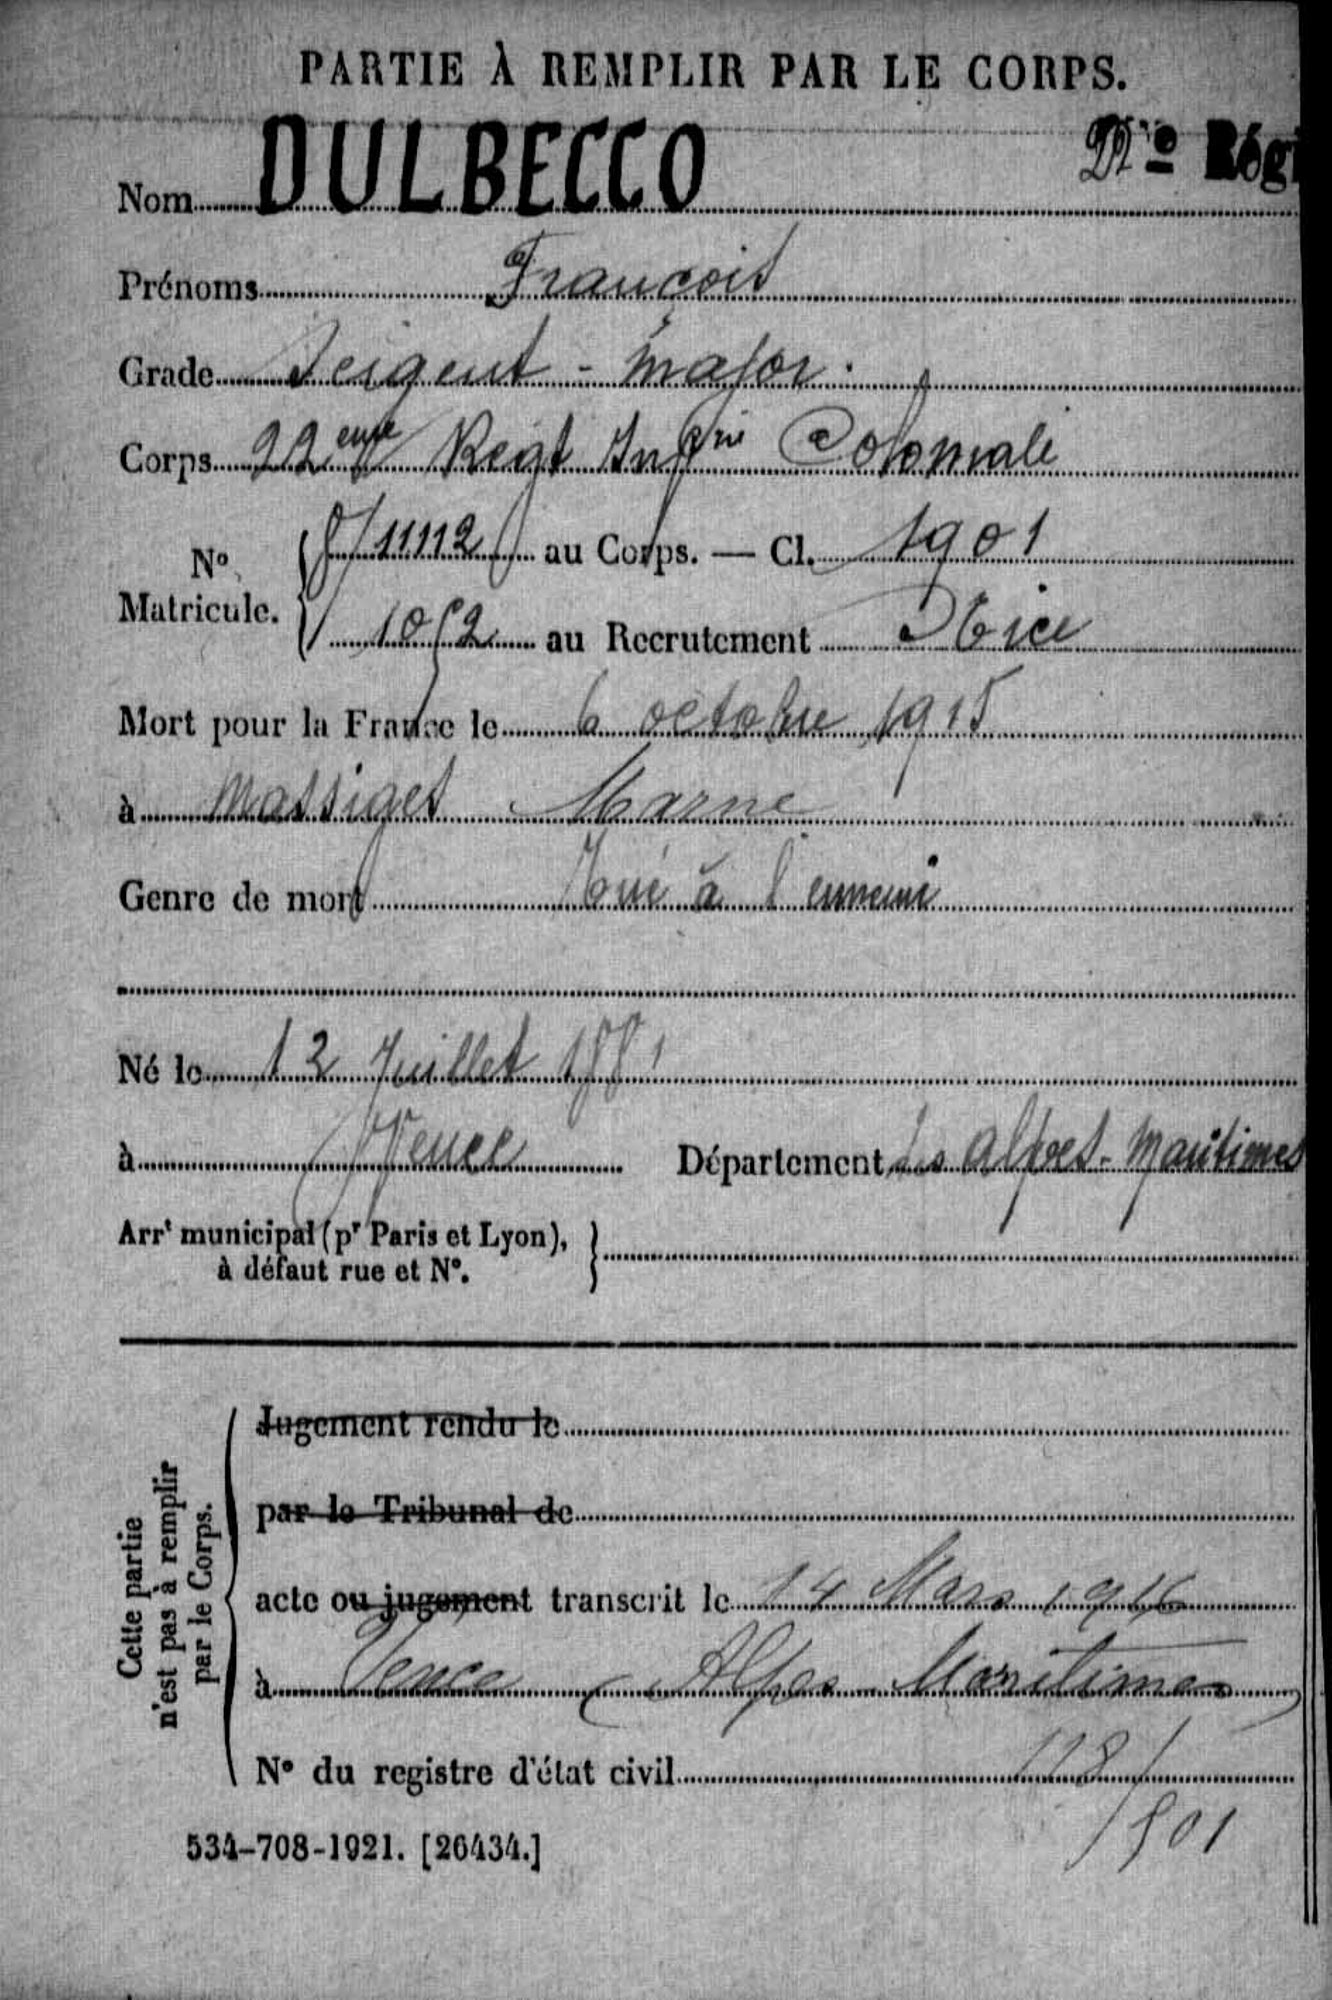 PARTIE À REMPLIR PAR LE CORPS.
22e Régi
Nom DULBECCO
Prénoms François
Grade Sergent-Major.
Corps 22eme Regt Infrie Coloniale
No Matricule. 8/11112 au Corps. — Cl. 1901
1052 au Recrutement Nice
Mort pour la France le 6 octobre 1915
à Massiges Marne
Genre de mort Tué à l'ennemi
Né le 12 Juillet 1881
à Vence Département des Alpes-Maritimes
Arrt municipal (pr Paris et Lyon),
à défaut rue et No.
Cette partie
n'est pas à remplir
par le Corps.
Jugement rendu le
par le Tribunal de
acte ou jugement transcrit le 14 Mars 1916
à Vence (Alpes Maritimes)
No du registre d'état civil 118/
501
534-708-1921. [26434.]